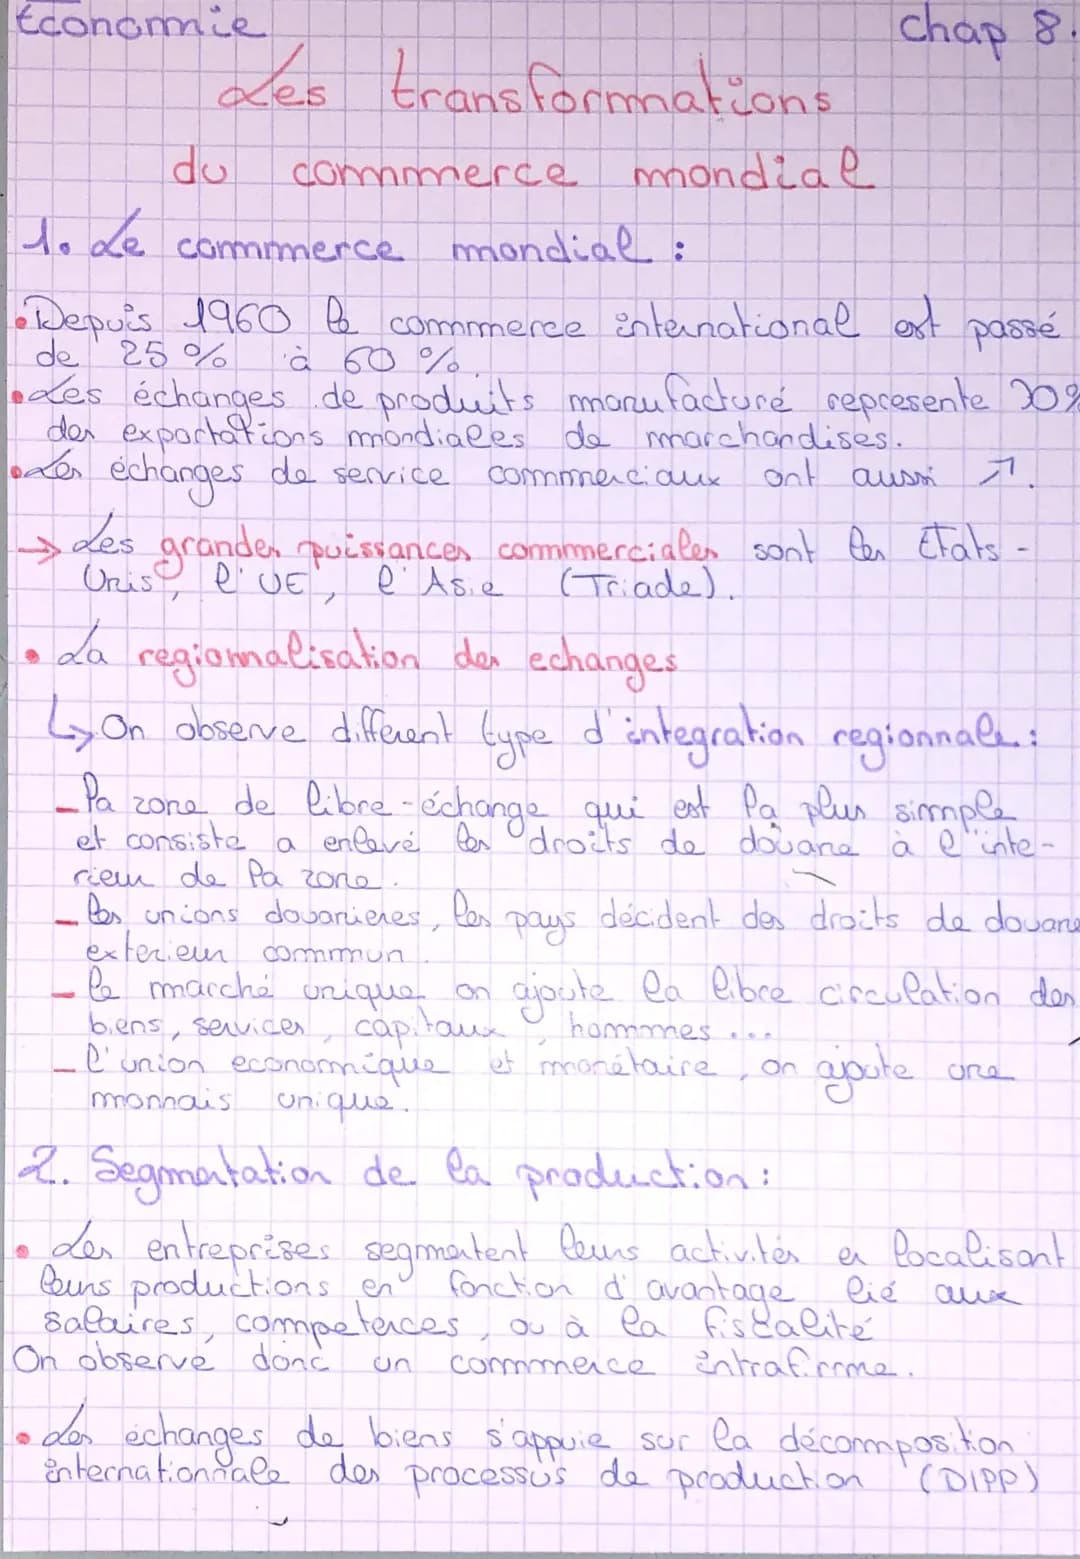 Economie
chap 8.
Les transformations
du commmerce mondial
1. Le commmerce mondial :
• Depuis 1960 le commmerce international est passé
de 25 % à 60 %.
• Les échanges de produits manufacturé represente 70%
des exportations mondiales de marchandises.
• Les échanges de service commmerciaux ont aussi ↗.
→ Les grandes puissances commmerciales sont les Etats-
Unis, l'UE, l'Asie (Triade).
• La regionnalisation des echanges
↳ On observe different type d'integration regionnale :
- la zone de libre-échange qui est la plus simple
et consiste a enlevé les droits de douane à l'inte-
rieur de la zone.
- les unions douanieres, les pays décident des droits de douane
exterieur commun.
- le marché unique on ajoute la libre circulation des
biens, services, capitaux, hommmes ...
- l'union economique et monétaire, on ajoute une
monnais unique.
2. Segmentation de la production :
• Les entreprises segmentent leurs activités en localisant
leurs productions en fonction d'avantage lié aux
salaires, competences, ou à la fiscalité
On observe donc un commmerce intrafirme.
• Les echanges de biens s'appuie sur la décomposition
internationnale des processus de production (DIPP)